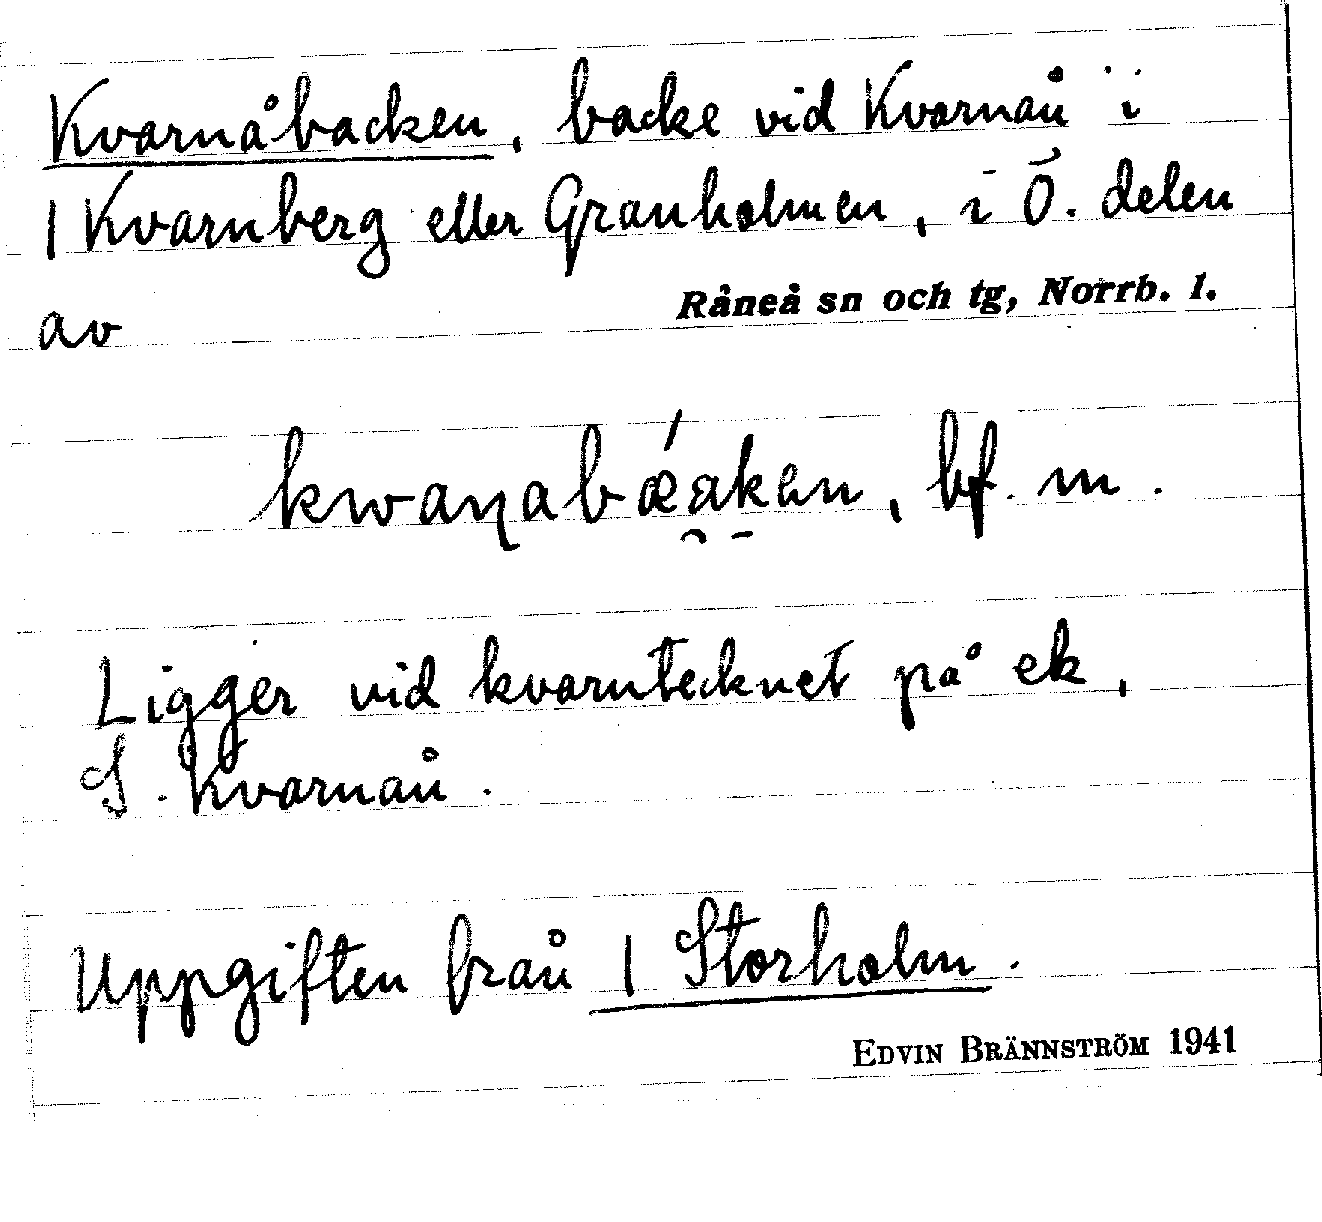 Kvarnåbacken, backe vid Kvarnån i
1 Kvarnberg eller Granholmen, i Ö. delen
av Råneå sn och tg, Norrb. l.
kwaɳabǽaken, bf. m.
Ligger vid kvarntecknet på ek,
S. Kvarnån.
Uppgiften från 1 Storholm.
EDVIN BRÄNNSTRÖM 1941